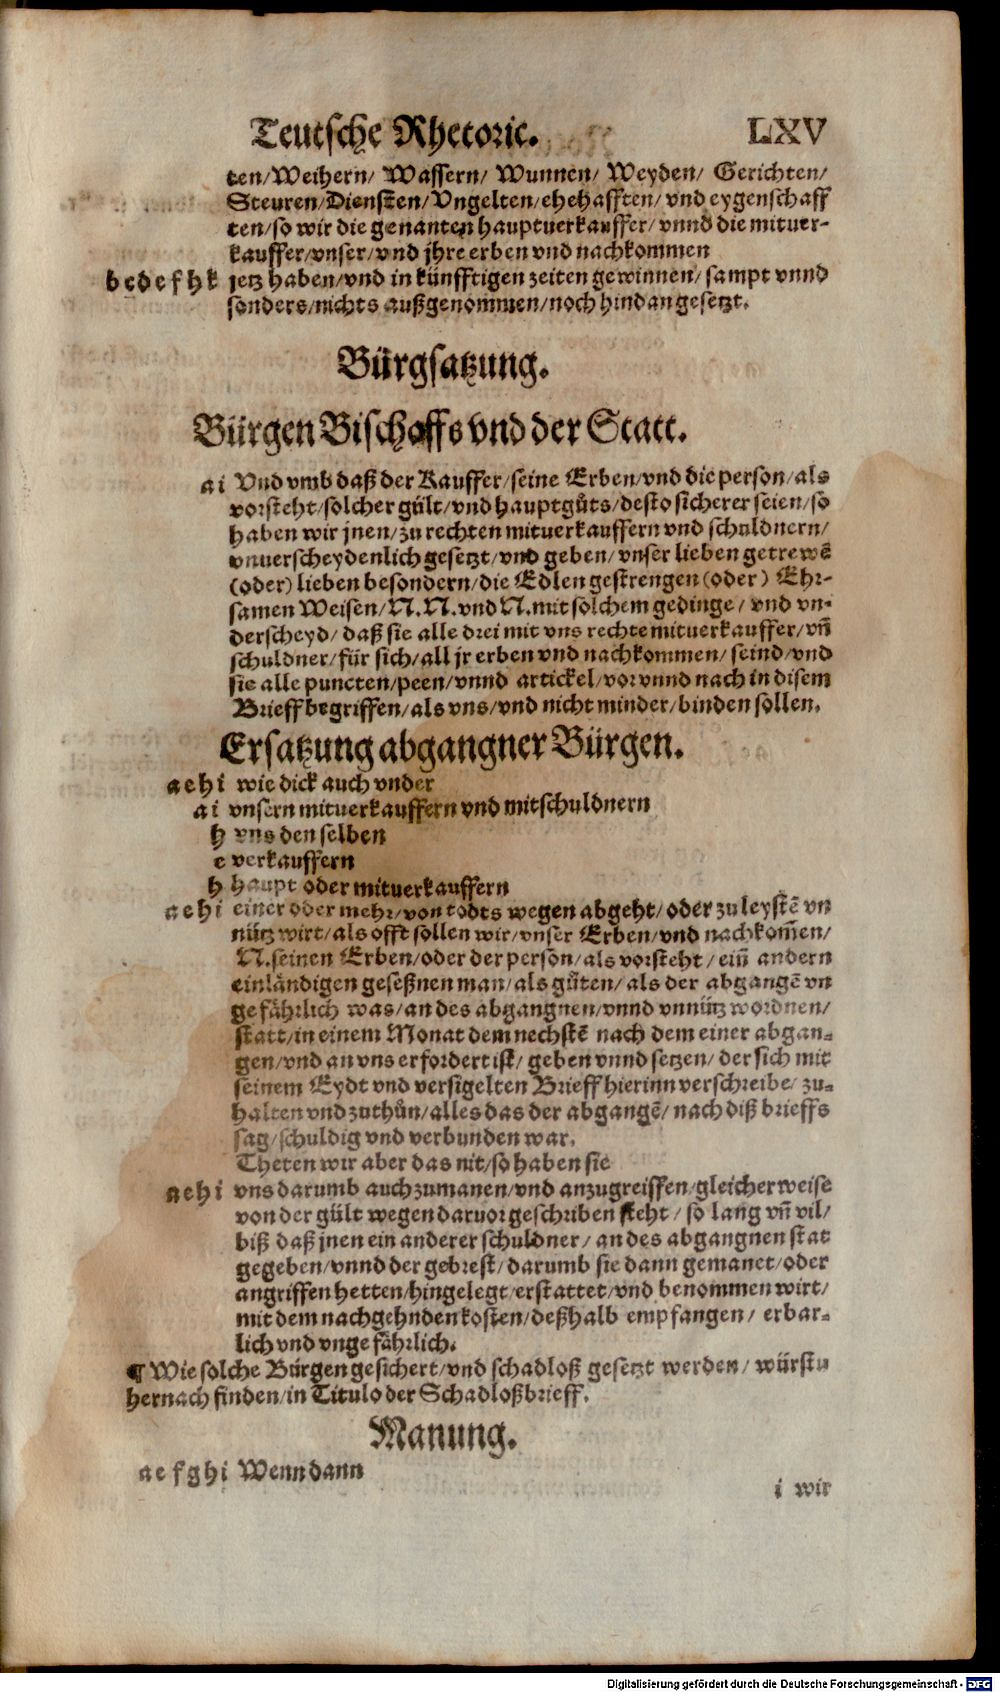 Teutsche Rhetoric. LXV
ten/Weihern/ Wassern/ Wunnen/ Weyden/ Gerichten/
Steuren/Diensten/Vngelten/ehehafften/ vnd eygenschaff
ten/so wir die genanten hauptuerkauffer/ vnnd die mituer-
kauffer/vnser/vnd jhre erben vnd nachkommen
b c d e f h k jetz haben/vnd in künfftigen zeiten gewinnen/sampt vnnd
sonders/nichts außgenommen/noch hindangesetzt.
Bürgsatzung.
Bürgen Bischoffs vnd der Statt.
a i Vnd vmb daß der Kauffer/seine Erben/vnd die person/als
vorsteht/solcher gült/vnd hauptgůts/desto sicherer seien/so
haben wir jnen/zu rechten mituerkauffern vnd schuldnern/
vnuerscheydenlich gesetzt/vnd geben/vnser lieben getrewē
(oder) lieben besondern/die Edlen gestrengen (oder) Ehr-
samen Weisen/N.N.vnd N.mit solchem gedinge/ vnd vn-
derscheyd/ daß sie alle drei mit vns rechte mituerkauffer/vn̄
schuldner/für sich/all jr erben vnd nachkommen/ seind/vnd
sie alle puncten/peen/vnnd artickel/vor vnnd nach in disem
Brieff begriffen/als vns/vnd nicht minder/binden sollen.
Ersatzung abgangner Bürgen.
a e h i wie dick auch vnder
a i vnsern mituerkauffern vnd mitschuldnern
h vns den selben
e verkauffern
h haupt oder mituerkauffern
a e h i einer oder mehr/von todts wegen abgeht/oder zu leystē vn
nütz wirt/als offt sollen wir/vnser Erben/vnd nachkom̄en/
N.seinen Erben/oder der person/als vorsteht/ ein̄ andern
einländigen geseßnen man/als gůten/als der abgangē vn
gefährlich was/an des abgangnen/vnnd vnnütz wordnen/
statt/in einem Monat dem nechstē nach dem einer abgan-
gen/vnd an vns erfordert ist/ geben vnnd setzen/ der sich mit
seinem Eydt vnd versigelten Brieff hierinn verschreibe/ zu-
halten vnd zuthůn/alles das der abgangē/nach diß brieffs
sag/schuldig vnd verbunden war.
Theten wir aber das nit/so haben sie
a e h i vns darumb auch zumanen/vnd anzugreiffen/gleicher weise
von der gült wegen daruor geschriben steht/ so lang vn̄ vil/
biß daß jnen ein anderer schuldner/ an des abgangnen stat
gegeben/vnnd der gebrest/darumb sie dann gemanet/oder
angriffen hetten/hingelegt/erstattet/vnd benommen wirt/
mit dem nachgehnden kosten/deßhalb empfangen/ erbar-
lich vnd vngefährlich.
¶ Wie solche Bürgen gesichert/vnd schadloß gesetzt werden/ würstu
hernach finden/in Titulo der Schadloßbrieff.
Manung.
a e f g h i Wenn dann
i wir
Digitalisierung gefördert durch die Deutsche Forschungsgemeinschaft - DFG